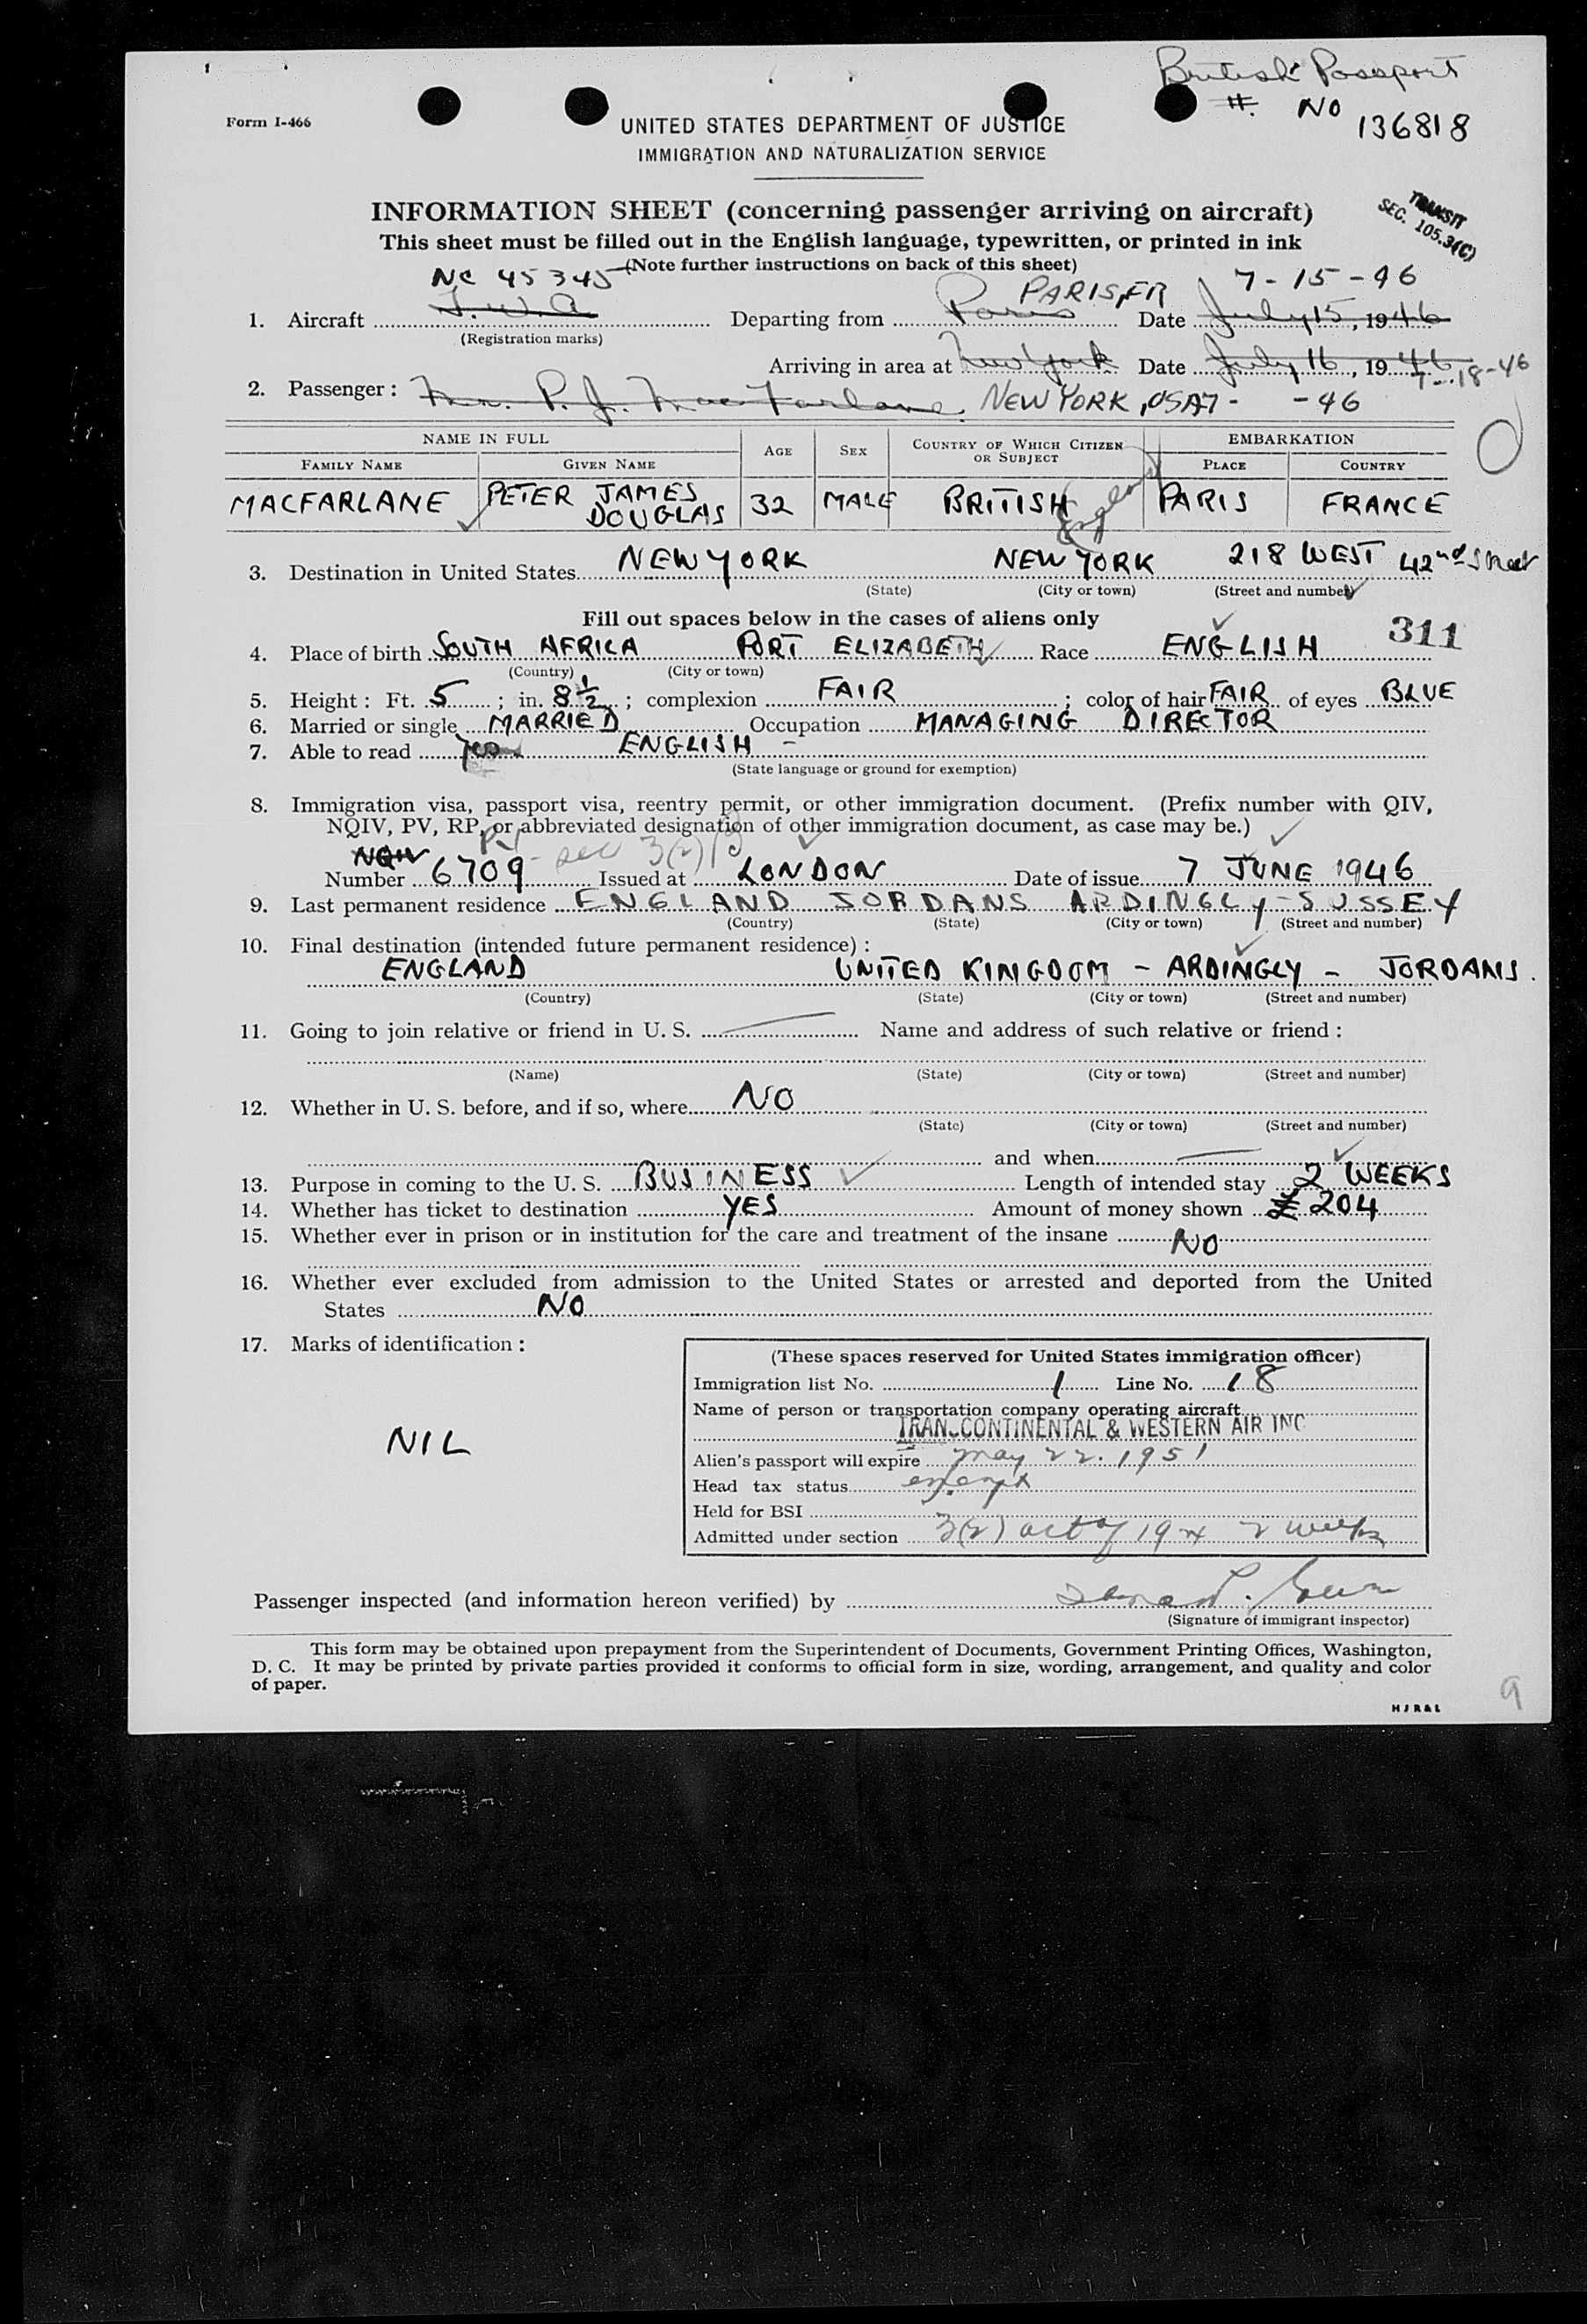 British Passport
#. NO
136818
Form I-466
UNITED STATES DEPARTMENT OF JUSTICE
IMMIGRATION AND NATURALIZATION SERVICE
INFORMATION SHEET (concerning passenger arriving on aircraft)
TRANSIT
SEC. 105.3(C)
This sheet must be filled out in the English language, typewritten, or printed in ink
(Note further instructions on back of this sheet)
NC 45345
PARIS, FR 7-15-46
1. Aircraft T.W.A Departing from Paris Date July 15, 1946
(Registration marks)
Arriving in area at New York Date July 16, 1946
7-18-46
2. Passenger: Mr. P. J. MacFarlane. NEW YORK, USA 7- -46
NAME IN FULL AGE SEX COUNTRY OF WHICH CITIZEN OR SUBJECT EMBARKATION
FAMILY NAME GIVEN NAME PLACE COUNTRY
MACFARLANE PETER JAMES DOUGLAS 32 MALE BRITISH England PARIS FRANCE
3. Destination in United States NEW YORK NEW YORK 218 WEST 42nd Street
(State) (City or town) (Street and number)
Fill out spaces below in the cases of aliens only
311
4. Place of birth SOUTH AFRICA PORT ELIZABETH Race ENGLISH
(Country) (City or town)
5. Height: Ft. 5; in. 8 1/2; complexion FAIR; color of hair FAIR of eyes BLUE
6. Married or single MARRIED Occupation MANAGING DIRECTOR
7. Able to read yes ENGLISH -
(State language or ground for exemption)
8. Immigration visa, passport visa, reentry permit, or other immigration document. (Prefix number with QIV,
NQIV, PV, RP, or abbreviated designation of other immigration document, as case may be.)
PV
NQIV
Number 6709 - sec 3(2) Issued at LONDON Date of issue 7 JUNE 1946
9. Last permanent residence ENGLAND JORDANS ARDINGLY - SUSSEY
(Country) (State) (City or town) (Street and number)
10. Final destination (intended future permanent residence):
ENGLAND UNITED KINGDOM - ARDINGLY - JORDANS.
(Country) (State) (City or town) (Street and number)
11. Going to join relative or friend in U. S. Name and address of such relative or friend:
(Name) (State) (City or town) (Street and number)
12. Whether in U. S. before, and if so, where NO
(State) (City or town) (Street and number)
and when
13. Purpose in coming to the U. S. BUSINESS Length of intended stay 2 WEEKS
14. Whether has ticket to destination YES Amount of money shown £ 204
15. Whether ever in prison or in institution for the care and treatment of the insane NO
16. Whether ever excluded from admission to the United States or arrested and deported from the United
States NO
17. Marks of identification:
NIL
(These spaces reserved for United States immigration officer)
Immigration list No. 1 Line No. 18
Name of person or transportation company operating aircraft
TRANSCONTINENTAL & WESTERN AIR INC
Alien's passport will expire May 22. 1951
Head tax status exempt
Held for BSI
Admitted under section 3(2) act of 1924 2 weeks
Passenger inspected (and information hereon verified) by
(Signature of immigrant inspector)
This form may be obtained upon prepayment from the Superintendent of Documents, Government Printing Offices, Washington,
D. C. It may be printed by private parties provided it conforms to official form in size, wording, arrangement, and quality and color
of paper.
HJR&L
9